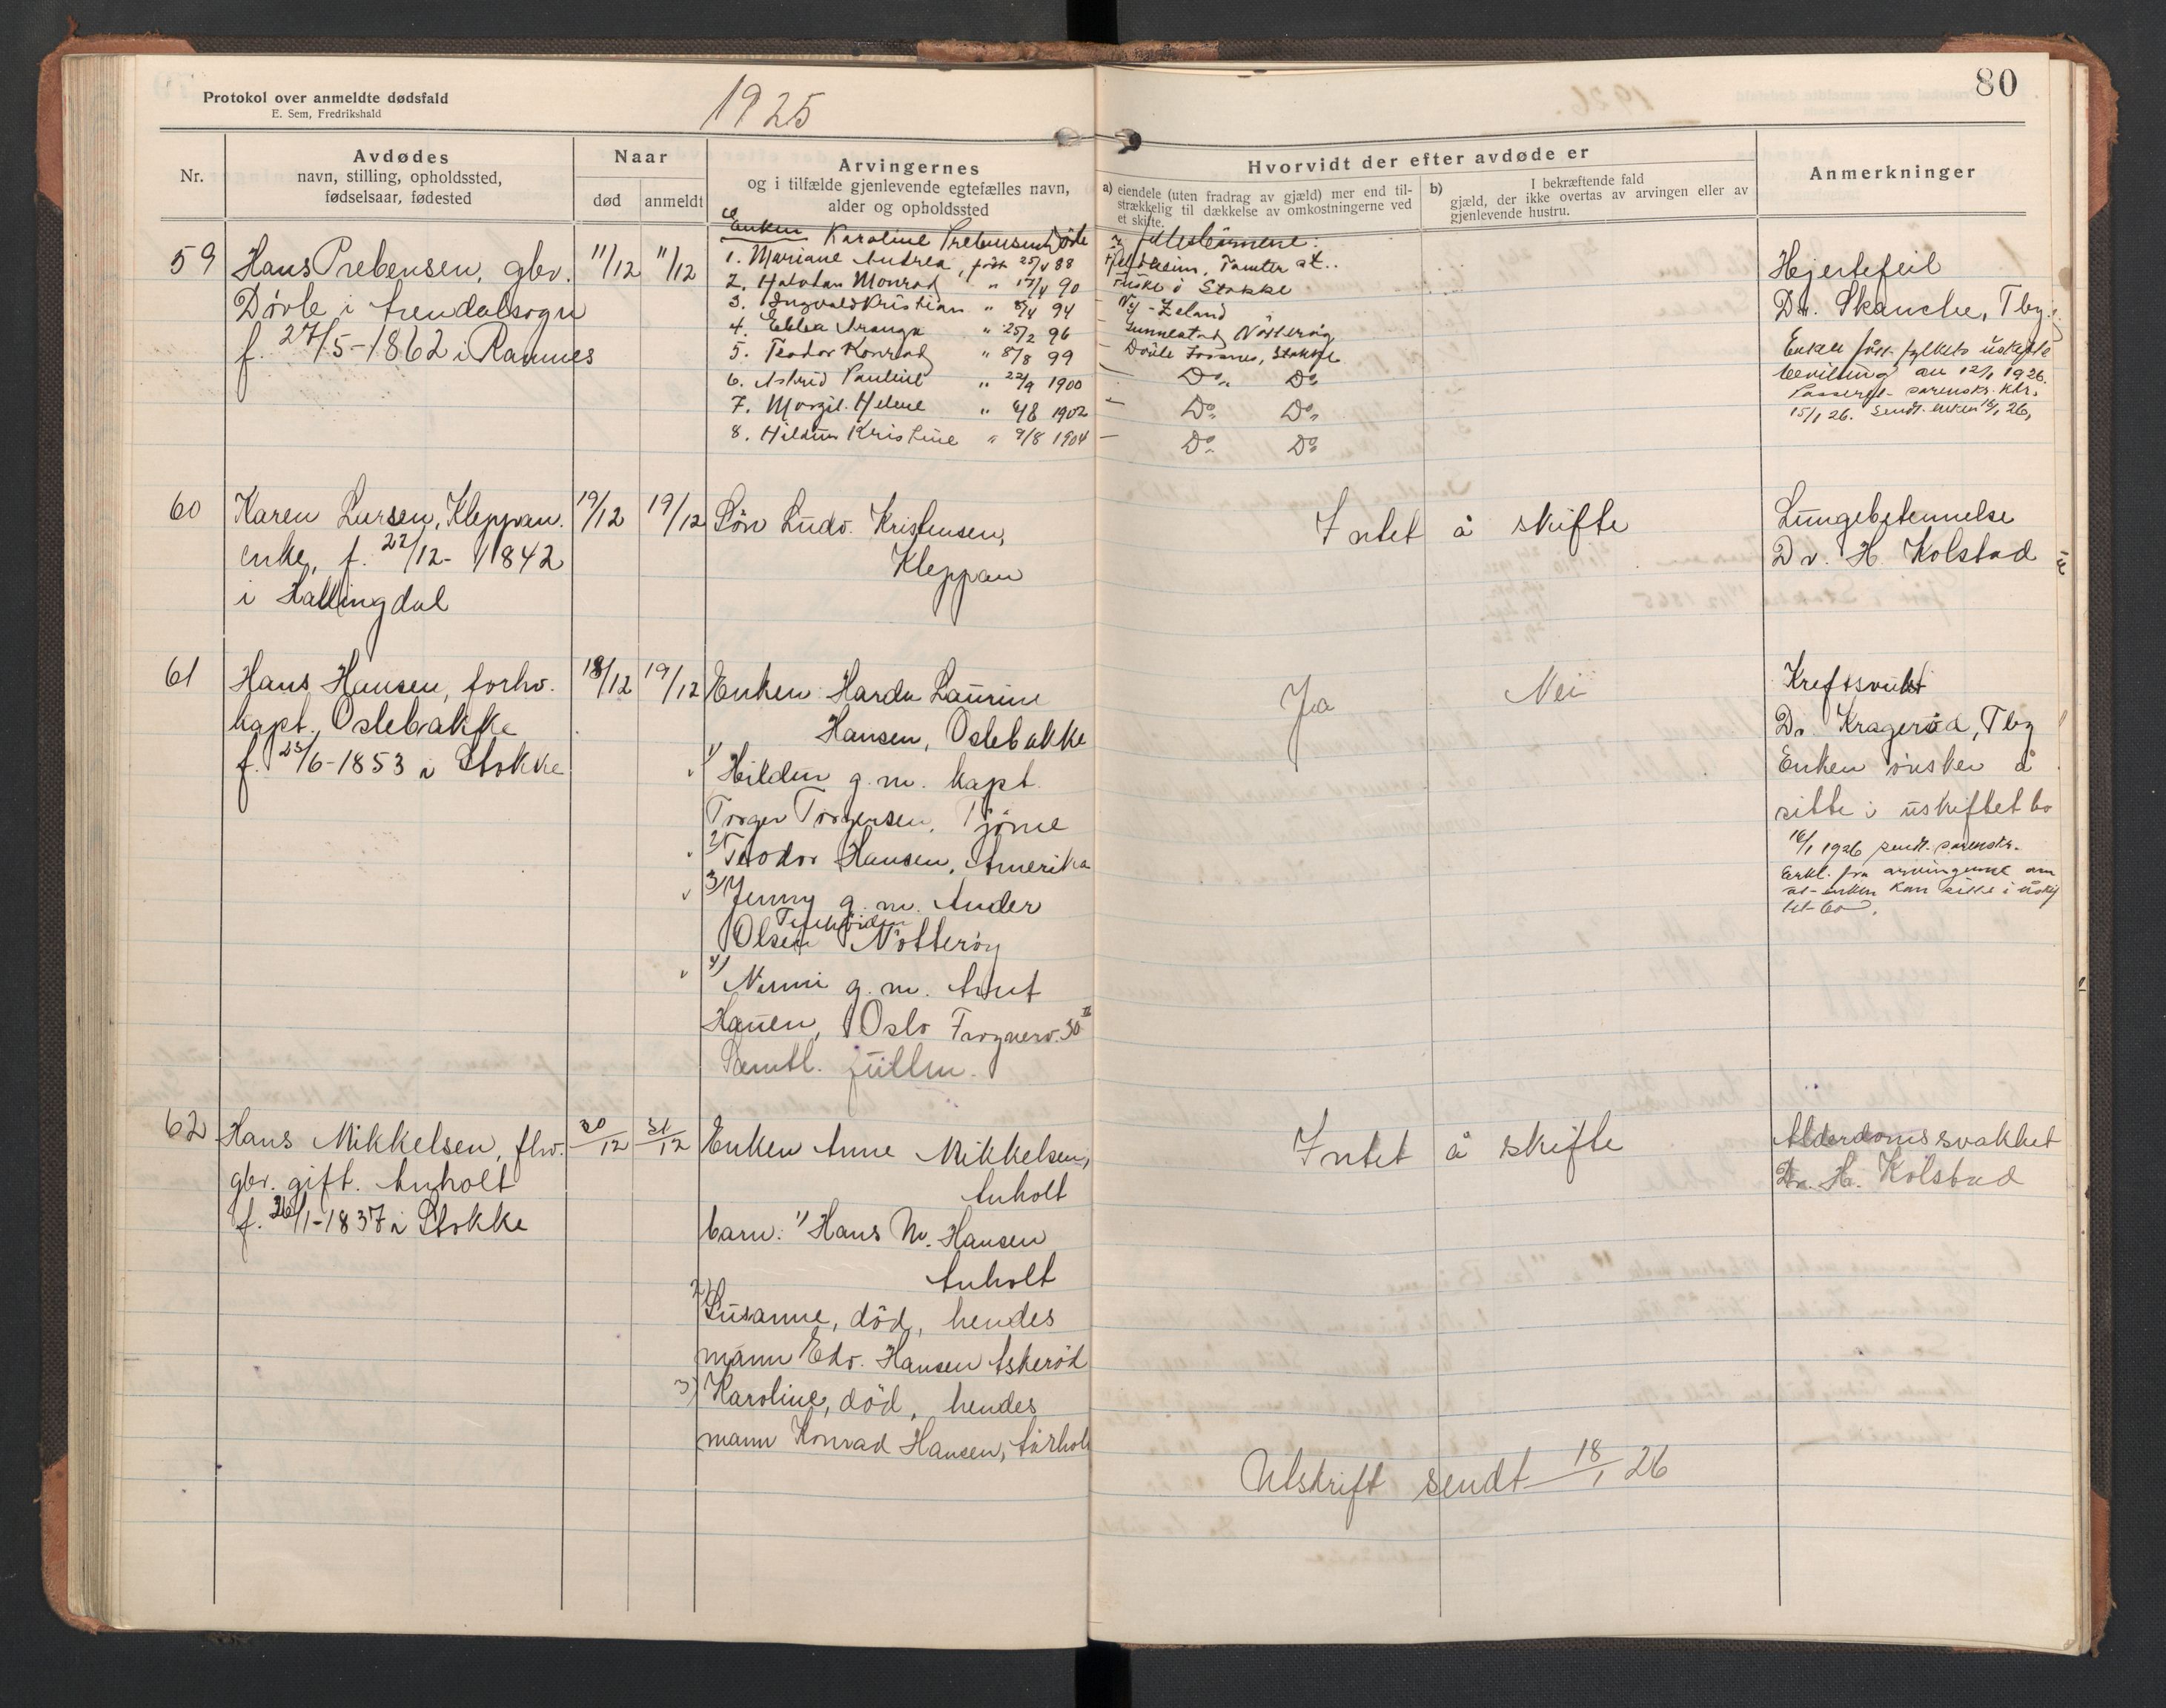 Protokol over anmeldte dødsfald
E. Sem, Fredrikshald
1925
80
Nr.
Avdødes
navn, stilling, opholdssted,
fødselsaar, fødested
Naar
død
anmeldt
Arvingernes
og i tilfælde gjenlevende egtefælles navn,
alder og opholdssted
Hvorvidt der efter avdøde er
a) eiendele (uten fradrag av gjæld) mer end til-
strækkelig til dækkelse av omkostningerne ved
et skifte.
b) I bekræftende fald
gjæld, der ikke overtas av arvingen eller av
gjenlevende hustru.
Anmerkninger
59
Hans Prebensen, gbr.
Døvle i Arendalsogn
f. 27/5-1862 i Ramnes
11/12
11/12
Enken Karoline Prebensen
1. Mariane Andrea, født 25/4 88
2. Halvdan Monrad " 17/4 90
3. Ingvald Kristian " 8/4 94
4. Ebba Aranga " 25/2 96
5. Teodor Konrad " 8/8 99
6. Astrid Pauline " 22/9 1900
7. Margit Helene " 4/8 1902
8. Hildur Kristine " 9/8 1904
Fellesbarnene:
Stokke
Ny-Zeland
Nøtterøy
Stokke
Do Do
Do Do
Do Do
Hjertefeil
Dr. Skanche, Tbg.
Enken fått fylkets uskifte
bevilling av 12/1 1926.
15/1 26. Sendt enken 16/1 26,
60
Karen Larsen, Kleppan.
enke, f. 22/12-1842
i Hallingdal
19/12
19/12
Søn Ludv. Kristensen,
Kleppan
Intet å skifte
Lungebetennelse
Dr. H. Kolstad
61
Hans Hansen, forhv.
kapt., Oslebakke
f. 23/6-1853 i Stokke
18/12
19/12
Enken Harda Laurine
Hansen, Oslebakke
1) Hildur g.m. kapt.
Torger Torgersen, Tjøme
2) Teodor Hansen, Amerika
3) Jenny g.m. Ander
Olsen Nøtterøy
4) Nanni g.m. Arnt
Hauen, Oslo Frognerv. 30 II
Samtl. fullm.
Ja
Nei
Kreftsvulst
Dr. Kragerød, Tbg
Enken ønsker å
sitte i uskiftet bo
16/1 1926 sendt
Erkl. fra arvingerne om
at enken kan sitte i uskif
tet bo.
62
Hans Mikkelsen, fhv.
gbr. gift. Anholt
f. 26/1-1837 i Stokke
30/12
31/12
Enken Anne Mikkelsen,
Anholt
barn: 1) Hans M. Hansen
Anholt
2) Susanne, død, hendes
mann Edv. Hansen Askerød
3) Karoline, død, hendes
mann Konrad Hansen,
Intet å skifte
Alderdomssvakhet
Dr. H. Kolstad
Utskrift sendt 18/1 26